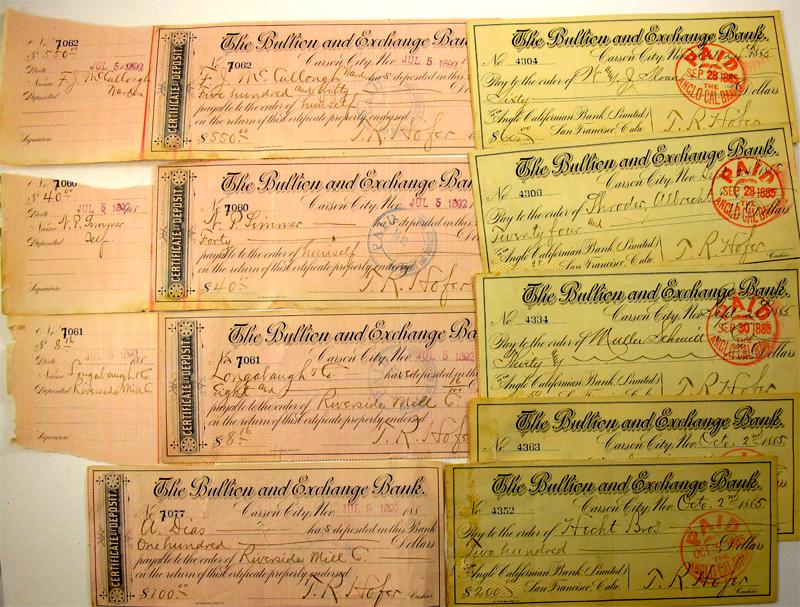 No. 7062
$550.00
Date JUL 5 1892
Name F. J. McCullough
Warden
Deposited
Signature
CERTIFICATE OF DEPOSIT.
The Bullion and Exchange Ban
Carson City, Nev. JUL 5 1892
No. 7062
F. J. McCullough Warden has deposited in this
Five hundred and fifty
payable to the order of himself
on the return of this Certificate properly endorsed.
$550.00 T. R. Hofer
7060
$40.00
Date JUL 5 1892
Name N. P. Simner
Deposited Self
Signature
CERTIFICATE OF DEPOSIT.
The Bullion and Exchange Ban
Carson City, Nev. JUL 5 1892
No. 7060
N. P. Simner has deposited in this
Forty
payable to the order of himself
on the return of this Certificate properly endorsed.
$40.00 T. R. Hofer
No. 7061
$8.16
Date JUL 5 1892
Name Longabaugh & Co
Deposited Riverside Mill Co
Signature
CERTIFICATE OF DEPOSIT.
The Bullion and Exchange Ba
Carson City, Nev. JUL 5 1892
No. 7061
Longabaugh & Co has deposited in this
Eight and 16
payable to the order of Riverside Mill Co.
on the return of this Certificate properly endorsed.
$8.16 T. R. Hofe
CERTIFICATE OF DEPOSIT.
The Bullion and Exchange Bank.
Carson City, Nev. JUL 9 1892 188
No. 7077
A. Dias has deposited in this Bank
One hundred Dollars
payable to the order of Riverside Mill Co.
on the return of this Certificate properly endorsed.
$100.00 T. R. Hofer Cashier
The Bullion and Exchange Bank.
Carson City, Nev. 1885
No. 4304
Pay to the order of
Sixty Dollars
To Anglo Californian Bank, (Limited)
San Francisco, Cala.
$60.00 T. R. Hofer
PAID
SEP 28 1885
THE
ANGLO-CAL BANK
The Bullion and Exchange Bank.
Carson City, Nev.
No. 4306
Pay to the order of Shroder, Albrecht
Twenty four and Dollars
To Anglo Californian Bank (Limited)
San Francisco, Cala. T. R. Hofer Cashier
PAID
SEP 28 1885
THE
ANGLO-CAL BANK
The Bullion and Exchange Bank.
Carson City, Nev.
No. 4334
Pay to the order of Muller Schmidt
Thirty Dollars
To Anglo Californian Bank (Limited)
San Francisco, Cala. T. R. Hofer
PAID
SEP 30 1885
THE
ANGLO-CAL BANK
The Bullion and Exchange Bank.
Carson City, Nev. Oct. 2nd 1885
No. 4363
The Bullion and Exchange Bank.
Carson City, Nev. Oct. 2nd 1885
No. 4352
Pay to the order of Hecht Bros
Two hundred Dollars
To Anglo Californian Bank, (Limited)
San Francisco, Cala.
$200.00 T. R. Hofer Cashier
PAID
OCT 5 1885
THE
ANGLO-CAL BANK